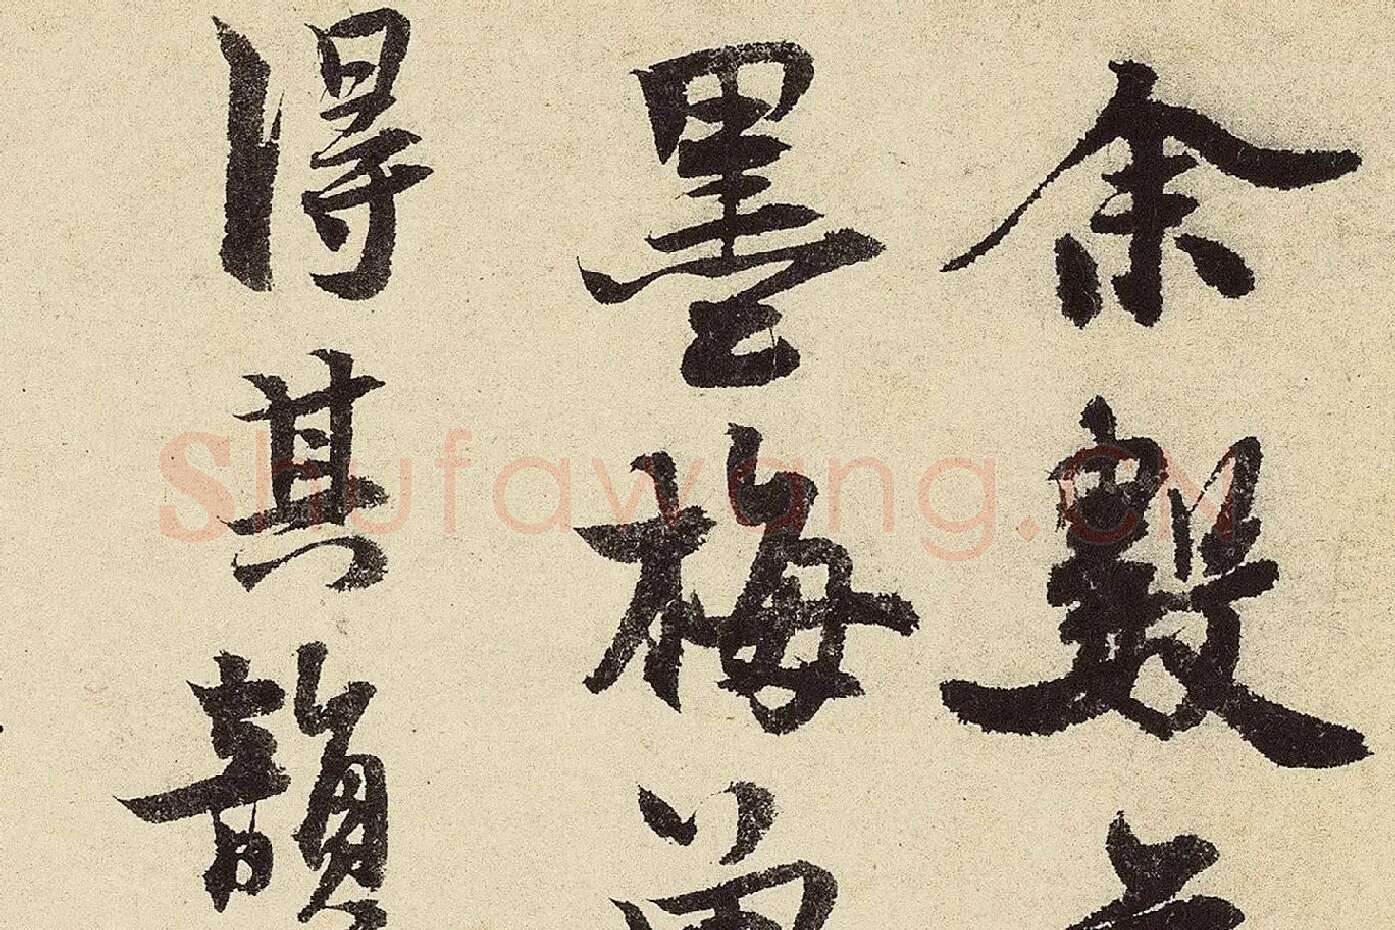 余數
墨梅曾
得其韻
Shufawang.CN